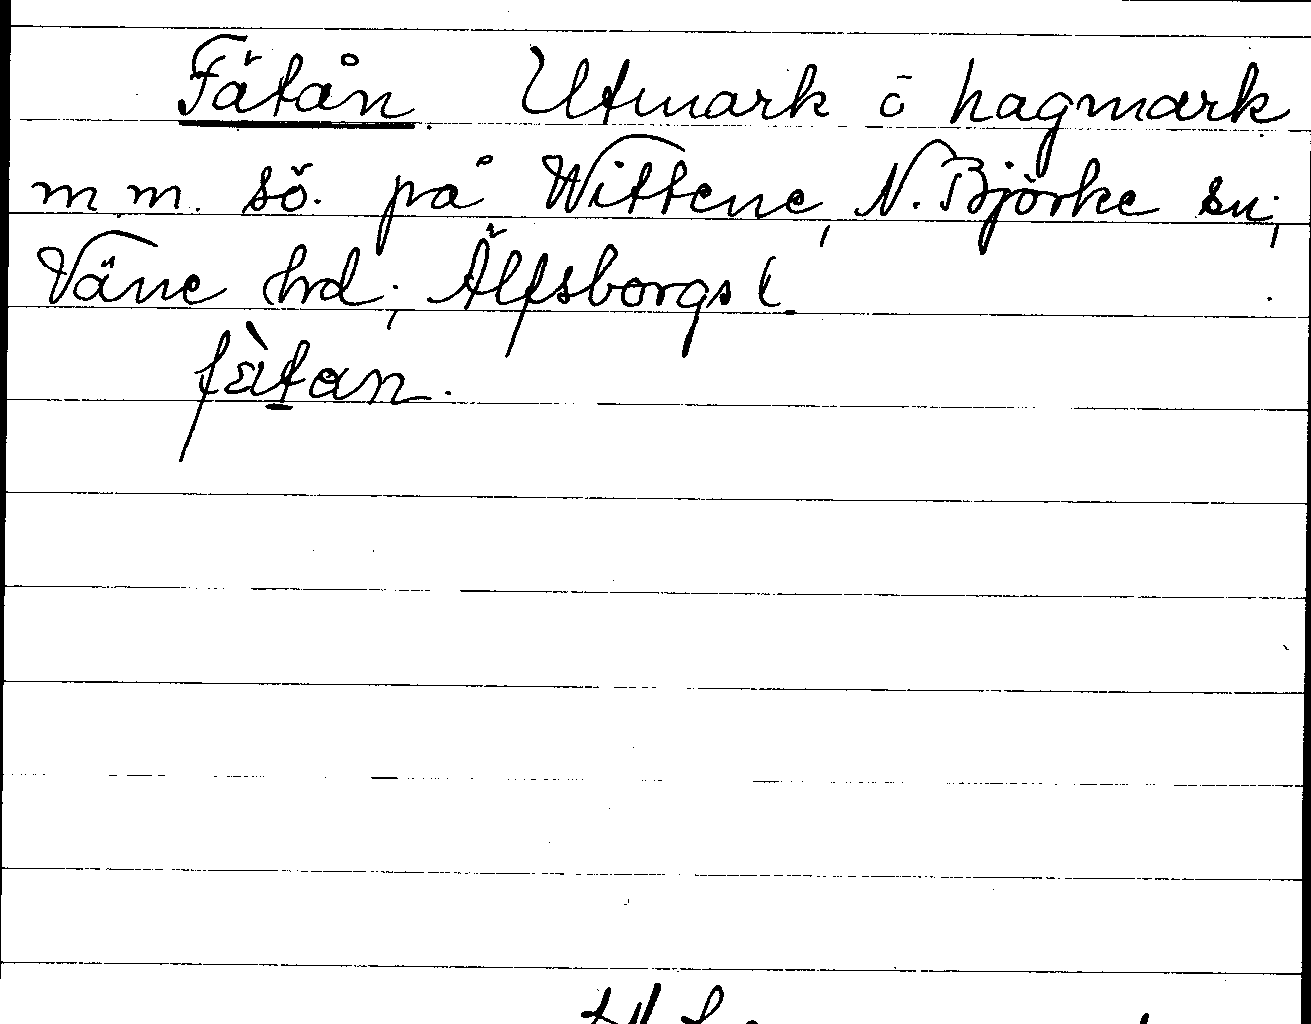 Fätån. Utmark o hagmark
m.m. sö. på Wittene, N. Björke sn,
Väne hrd, Älfsborgs l.
fètan.